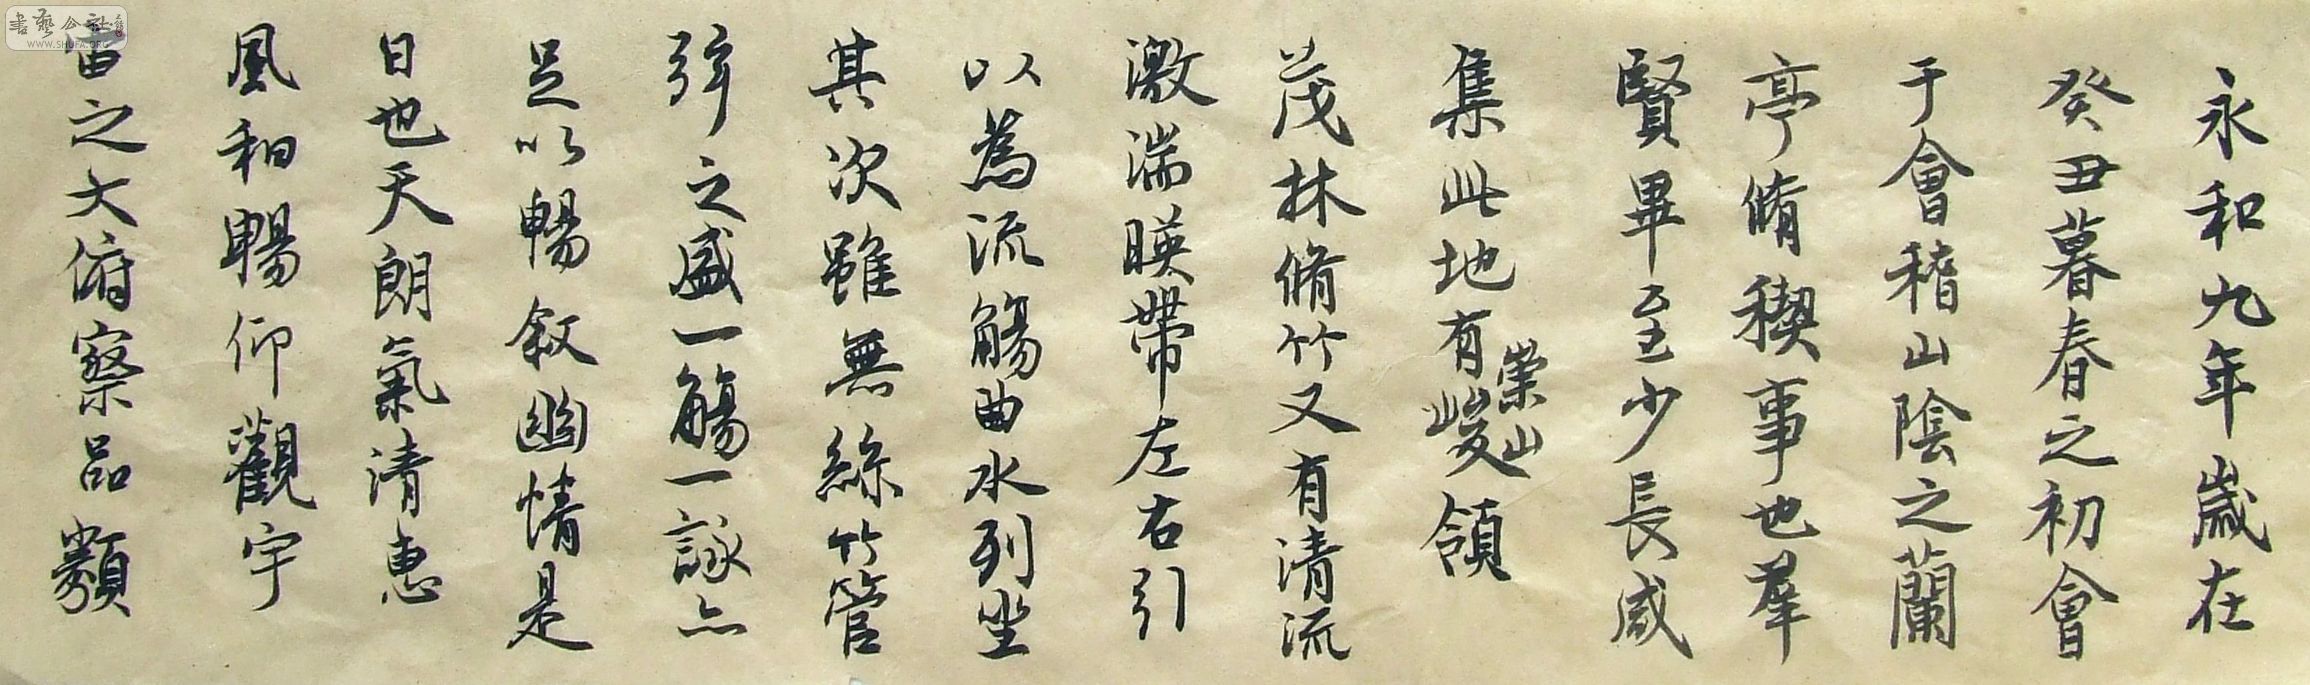 永和九年歲在
癸丑暮春之初會
于會稽山陰之蘭
亭脩稧事也羣
賢畢至少長咸
集此地有崇山峻領
茂林脩竹又有清流
激湍暎帶左右引
以為流觴曲水列坐
其次雖無絲竹管
弦之盛一觴一詠亦
足以暢敘幽情是
日也天朗氣清惠
風和暢仰觀宇
宙之大俯察品類
書藝公社
WWW.SHUFA.ORG